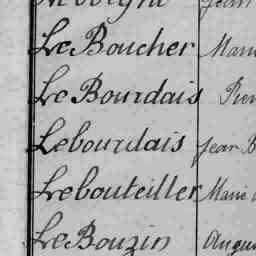 Le Boucher Marie
Le Bourdais
Lebourdais Jean
Lebouteiller Marie
Le Bouzin